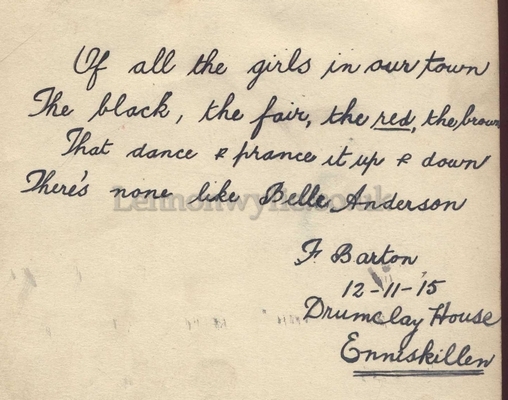 Of all the girls in our town
The black, the fair, the red, the brown
That dance & prance it up & down
There's none like Belle Anderson
Lennonwylie.co.uk
F. Barton
12-11-15
Drumclay House
Enniskillen